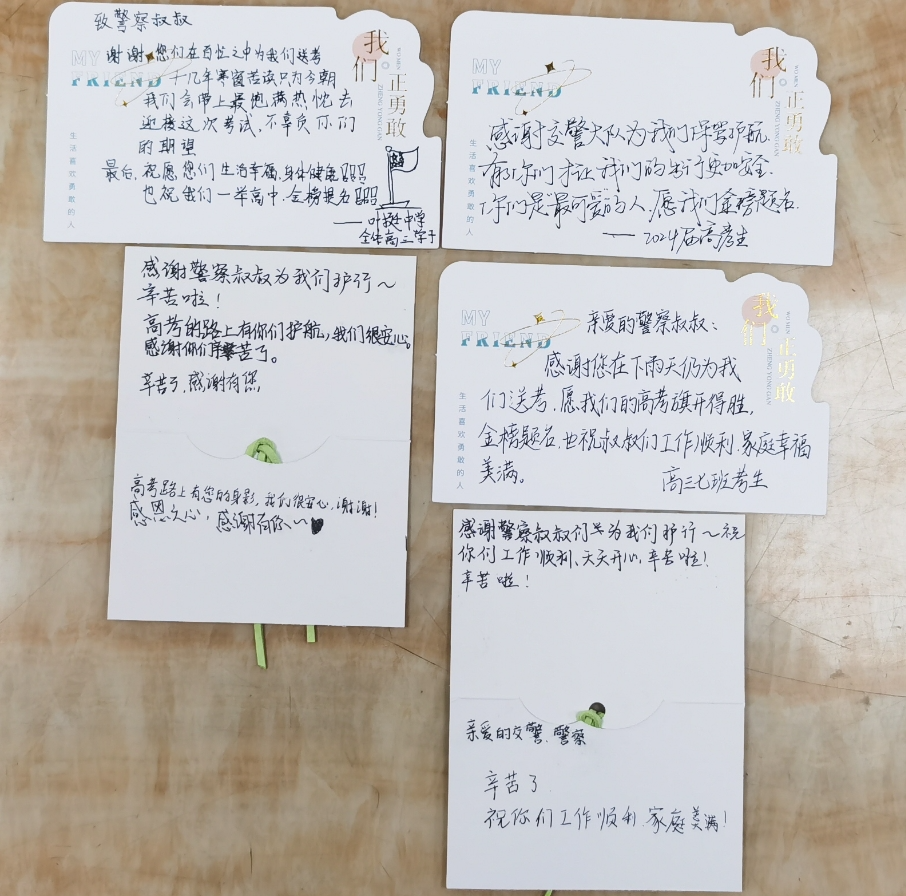 致警察叔叔
谢谢您们在百忙之中为我们送考
十几年寒窗苦读只为今朝
我们会带上最饱满热忱去
迎接这次考试,不辜负你们
的期望
最后,祝愿您们生活幸福,身体健康
也祝我们一举高中,金榜提名
——叶挺中学
全体高三学子
MY
FRIEND
我们。
正勇敢
WO MEN
ZHENG YONG GAN
生活喜欢勇敢的人
感谢交警大队为我们保驾护航.
有你们才让我们的出行更加安全.
你们是“最可爱的”人.愿我们金榜题名.
——2024届高考生
MY
FRIEND
我们。
正勇敢
WO MEN
ZHENG YONG GAN
生活喜欢勇敢的人
感谢警察叔叔为我们护行~
辛苦啦!
高考的路上有你们护航,我们很安心。
感谢你们,辛苦了。
辛苦了,感谢有您
高考路上有您的身影,我们很安心,谢谢!
感恩之心,感谢有你~
亲爱的警察叔叔:
感谢您在下雨天仍为我
们送考,愿我们的高考旗开得胜,
金榜题名,也祝叔叔们工作顺利,家庭幸福
美满。
高三七班考生
MY
FRIEND
我们。
正勇敢
WO MEN
ZHENG YONG GAN
生活喜欢勇敢的人
感谢警察叔叔们为我们护行~祝
你们工作顺利、天天开心,辛苦啦!
辛苦啦!
亲爱的交警、警察
辛苦了
祝你们工作顺利,家庭美满!